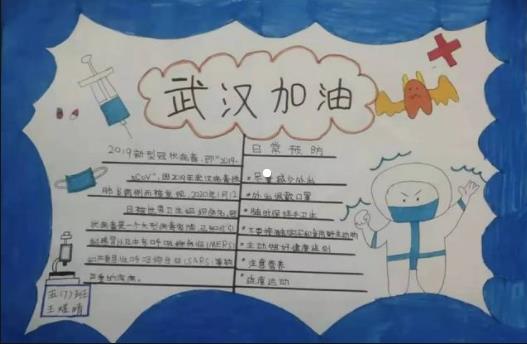 武汉加油
2019新型冠状病毒,即"2019-
nCoV",因2019年
肺炎病例而被发现,2020年1月12
日被世界卫生组织命名,冠
状病毒是一个大型病毒家族,已知可引
起感冒以及中东呼吸综合征(MERS)
和严重急性呼吸综合征(SARS)等较
严重的疾病。
日常预防
尽量减少外出
外出佩戴口罩
随时保持手卫生
主动做好健康
注意营养
适度运动
五(7)班
王煜晴